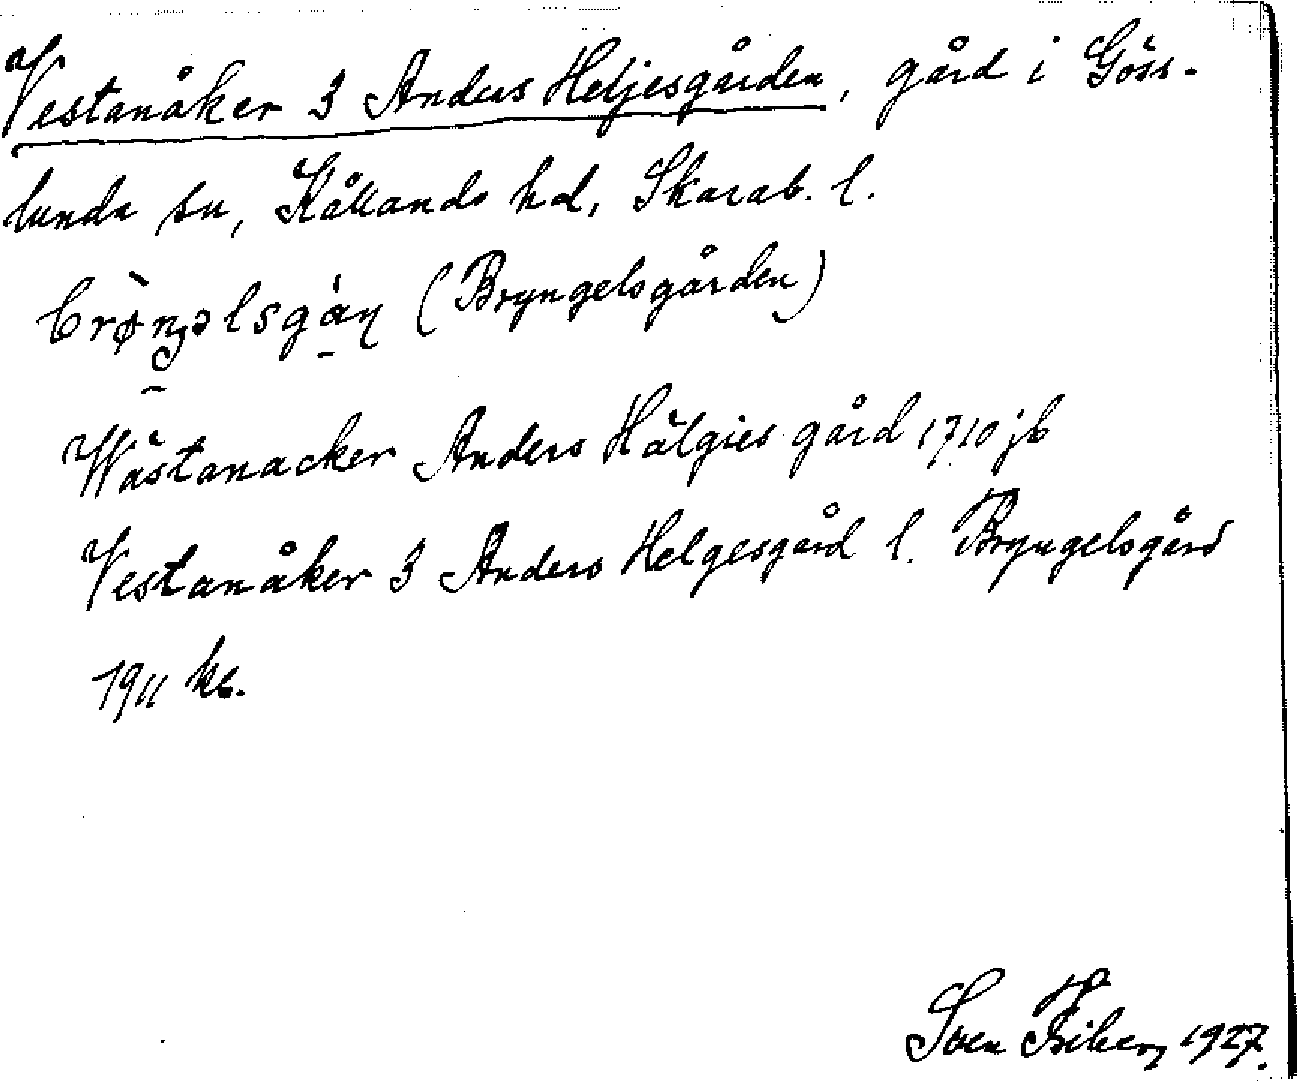 Vestanåker 3 Anders Heljesgården, gård i Göss-
lunda sn, Kållands hd, Skarab. l.
brø̀ŋəlsgá̠ṇ (Bryngelsgården)
Wästanacker Anders Hälgies gård 1710 jb
Vestanåker 3 Anders Helgesgård l. Bryngelsgård
1911 kb.
Sven 1927.